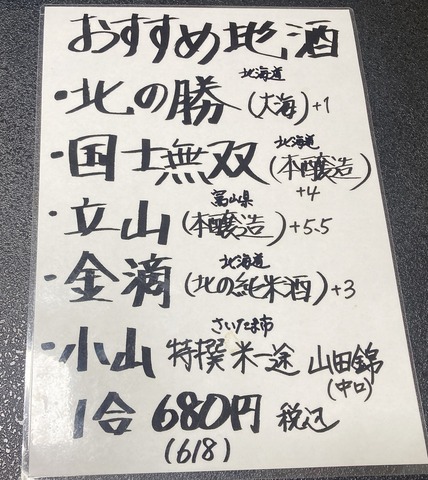 おすすめ地酒
北海道
・北の勝(大海)+1
北海道
・国士無双(本醸造)+4
富山県
・立山(本醸造)+5.5
北海道
・金滴(北の純米酒)+3
さいたま市
・小山 特撰 米一途 山田錦(中口)
1合 680円 税込
(618)